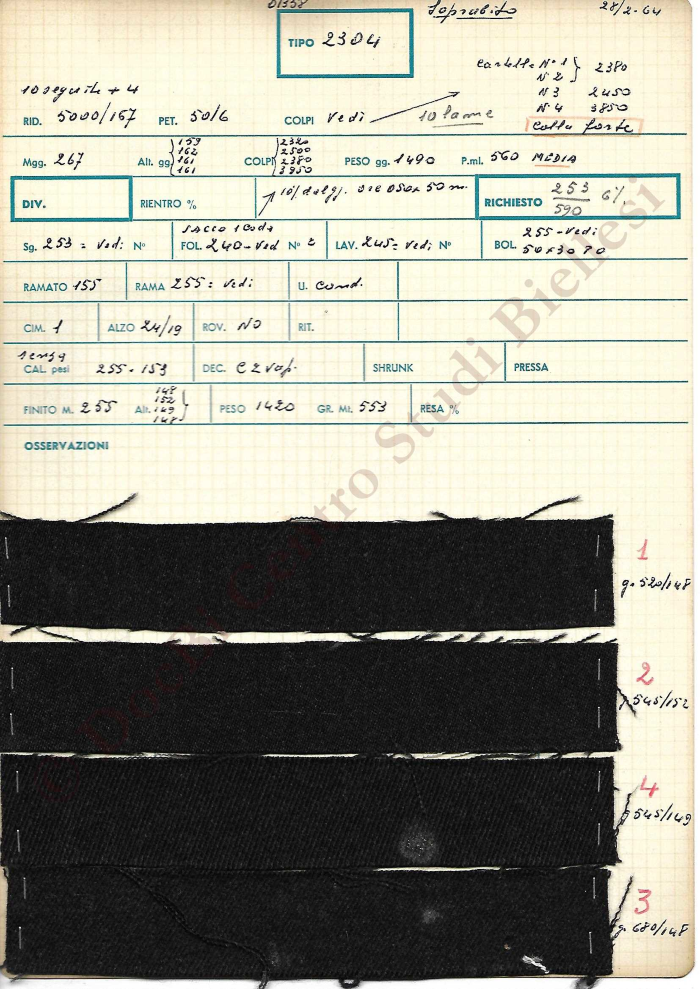 01358
Soprabito
28/2-64
TIPO 2304
Cartelle N° 1 } 2380
N 2
N 3 2450
N 4 3850
Colla forte
10 seguite + 4
RID. 5000/167 PET. 50/6 COLPI Vedi 10 lame
Mgg. 267 Alt. gg. 159 162 161 161 COLPI 2320 2500 2380 3950 PESO gg. 1490 P.ml. 560 MEDIA
DIV. RIENTRO % RICHIESTO 253/590 6%
Sg. 253 = Vedi N° FOL. 240 - Ved N° 2 LAV. 245 = Vedi N° BOL. 255 - Vedi
50+30 70
RAMATO 155 RAMA 255 = Vedi U. Cond.
CIM. 1 ALZO 24/19 ROV. NO RIT.
senza
CAL. pesi 255 - 153 DEC. C 2 Vap. SHRUNK PRESSA
FINITO M. 255 Alt. 148 152 149 148 PESO 1420 GR. Mt. 553 RESA %
OSSERVAZIONI
1
g. 520/148
2
g. 545/152
4
g. 545/149
3
g. 680/148
© DocBi Centro Studi Biellesi